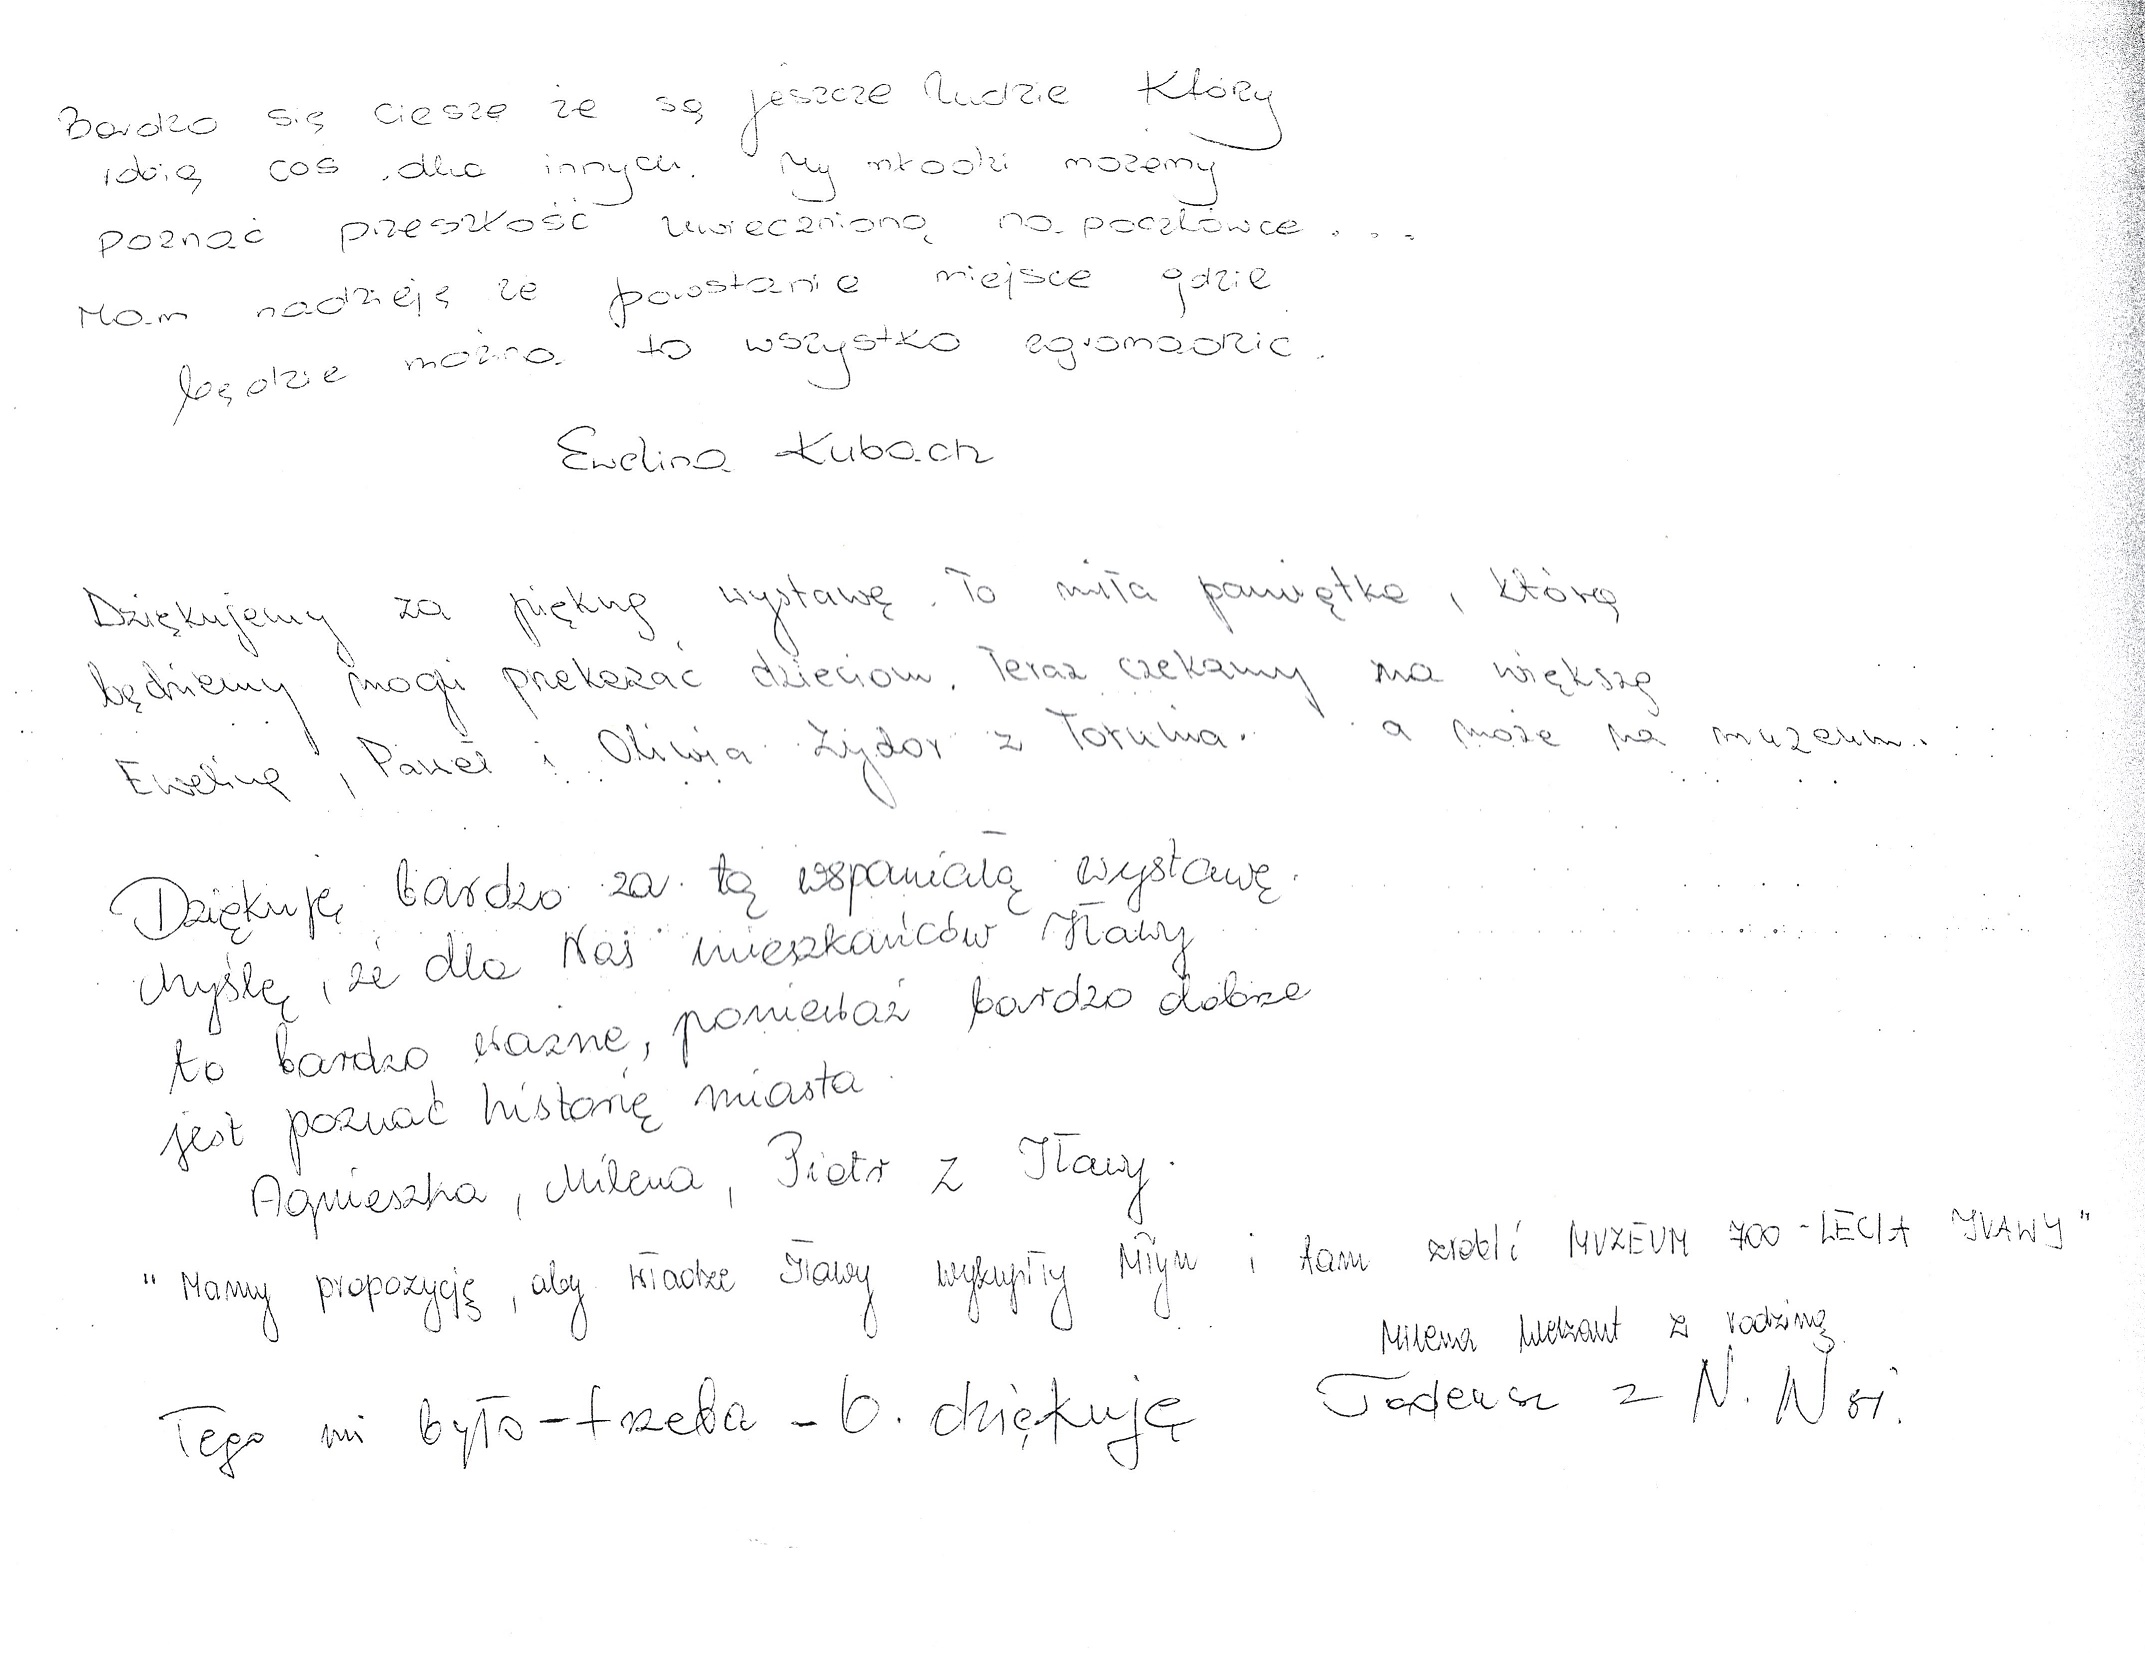 Bardzo się cieszę że są jeszcze ludzie Który
robią coś dla innych. My młodzi możemy
poznać przeszłość uwiecznioną na pocztówce...
Mam nadzieję że powstanie miejsce gdzie
będzie można to wszystko zgromadzić.
Ewelina Kubach
Dziękujemy za piękną wystawę. To miła pamiątka, którą
będziemy mogli przekazać dzieciom. Teraz czekamy na większą
a może na muzeum.
Ewelina, Paweł i Oliwia Żydor z Torunia.
Dziękuję bardzo za tą wspaniałą wystawę.
Myślę, że dla Nas mieszkańców Iławy
to bardzo ważne, ponieważ bardzo dobrze
jest poznać historię miasta
Agnieszka, Milena, Piotr z Iławy.
"Mamy propozycję, aby władze Iławy wykupiły Młyn i tam zrobić MUZEUM 700-LECIA IŁAWY"
Milena z rodziną
Tego mi było-trzeba - b. dziękuję Tadeusz z N.